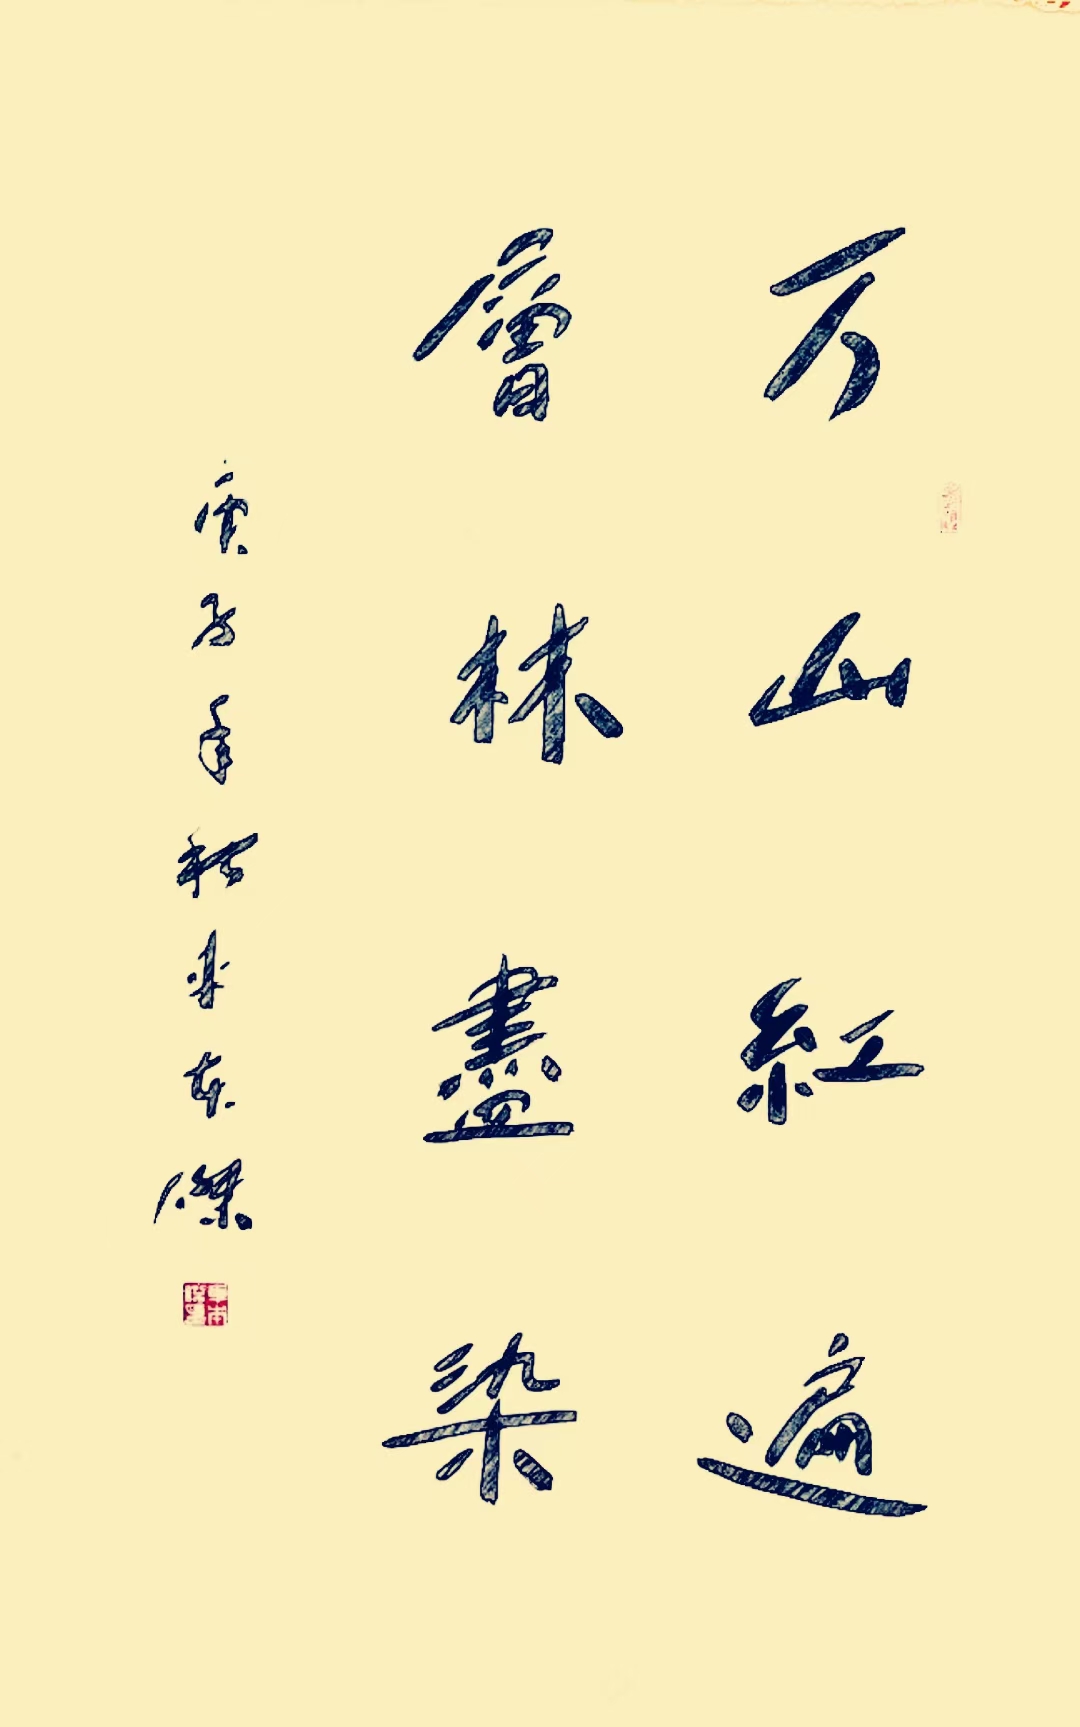 万山紅遍
層林盡染
庚子年秋
本傑